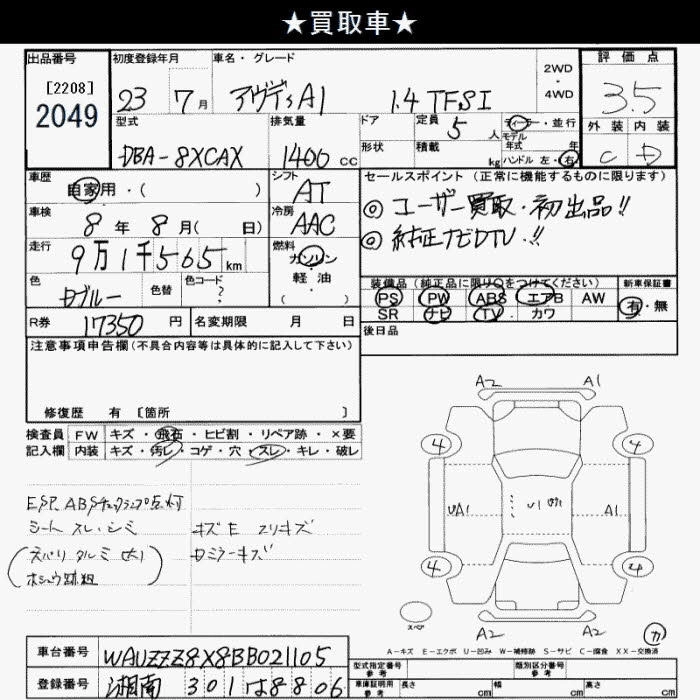 ★買取車★
出品番号 初度登録年月 車名・グレード 評価点
[2208] 2049
23 7月 アウディA1 1.4 TFSI 2WD・4WD 3.5
型式 排気量 ドア 定員 5人 ディーラー・並行 外装 内装
モデル年式 年
DBA-8XCAX 1400cc 形状 積載 kg ハンドル 左・右 C D
車歴 シフト セールスポイント (正常に機能するものに限ります)
自家用・( ) AT ◎ユーザー買取・初出品!!
車検 冷房
8年8月( 日) AAC ◎純正ナビDTV・!!
走行 燃料
9万1千565km ガソリン・軽油・( )
色 色替 色コード 装備品(純正品に限り○をつけてください) 新車保証書
ブルー ? PS PW ABS エアB AW 有・無
R券 17350円 名変期限 月 日 SR ナビ TV カワ
注意事項申告欄(不具合内容等は具体的に記入して下さい) 後日品
修復歴 有 [箇所 ]
検査員 FW キズ・飛石・ヒビ割・リペア跡・×要
記入欄 内装 キズ・汚レ・コゲ・穴・スレ・キレ・破レ
A2 A1
4 4
ESP. ABSチェックランプ点灯
シート スレ・シミ キズE スリキズ
UA1 U1 A1
4 4
スペア
A2 A2
A-キズ E-エクボ U-凹み W-補修跡 S-サビ C-腐食 XX-交換済
車台番号 WAUZZZ8X8BB021105 型式指定番号 参考 類別区分番号 参考
登録番号 湘南 301 は 8806 車庫証明用 参考 長さ cm 幅 cm 高さ cm